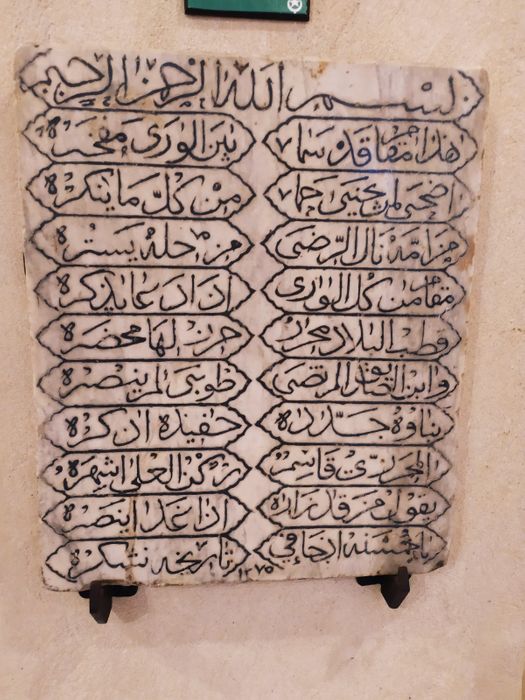 بسم الله الرحمن الرحيم
هذا مقام قد سما بين الورى مفخره
اضحى لمن يجيئ حما من كل ما ينكره
من امه نال الرضى من حله يستره
مقام من كل الورى ان ادعا يذكره
قطب البلاد محرز حرز لها محضره
وابن الصديق المرتضى طوبى لمن ينصره
بناؤه جدده حفيده ان كره
المحرزي قاسم ركن العلى اشهره
يقول من قد زاره اذا غدا
يا حسنه اذ جا في تاريخه نشكره
١٢٧٥